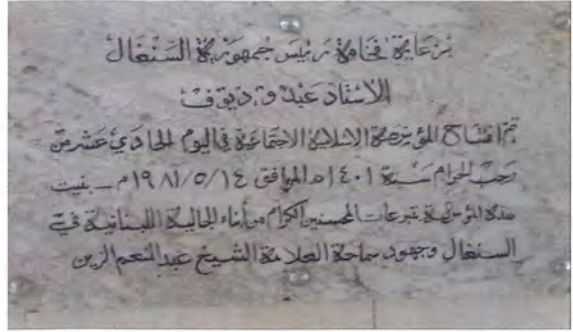 برعاية فخامة رئيس جمهورية السنغال
الأستاذ عبده ديوف
تم افتتاح المؤسسة الإسلامية الاجتماعية في اليوم الحادي عشر من
رجب الحرام سنة ١٤٠١هـ الموافق ١٤/٥/١٩٨١م _ بنيت
هذه المؤسسة بتبرعات المحسنين الكرام من أبناء الجالية اللبنانية في
السنغال وجهود سماحة العلامة الشيخ عبد المنعم الزين